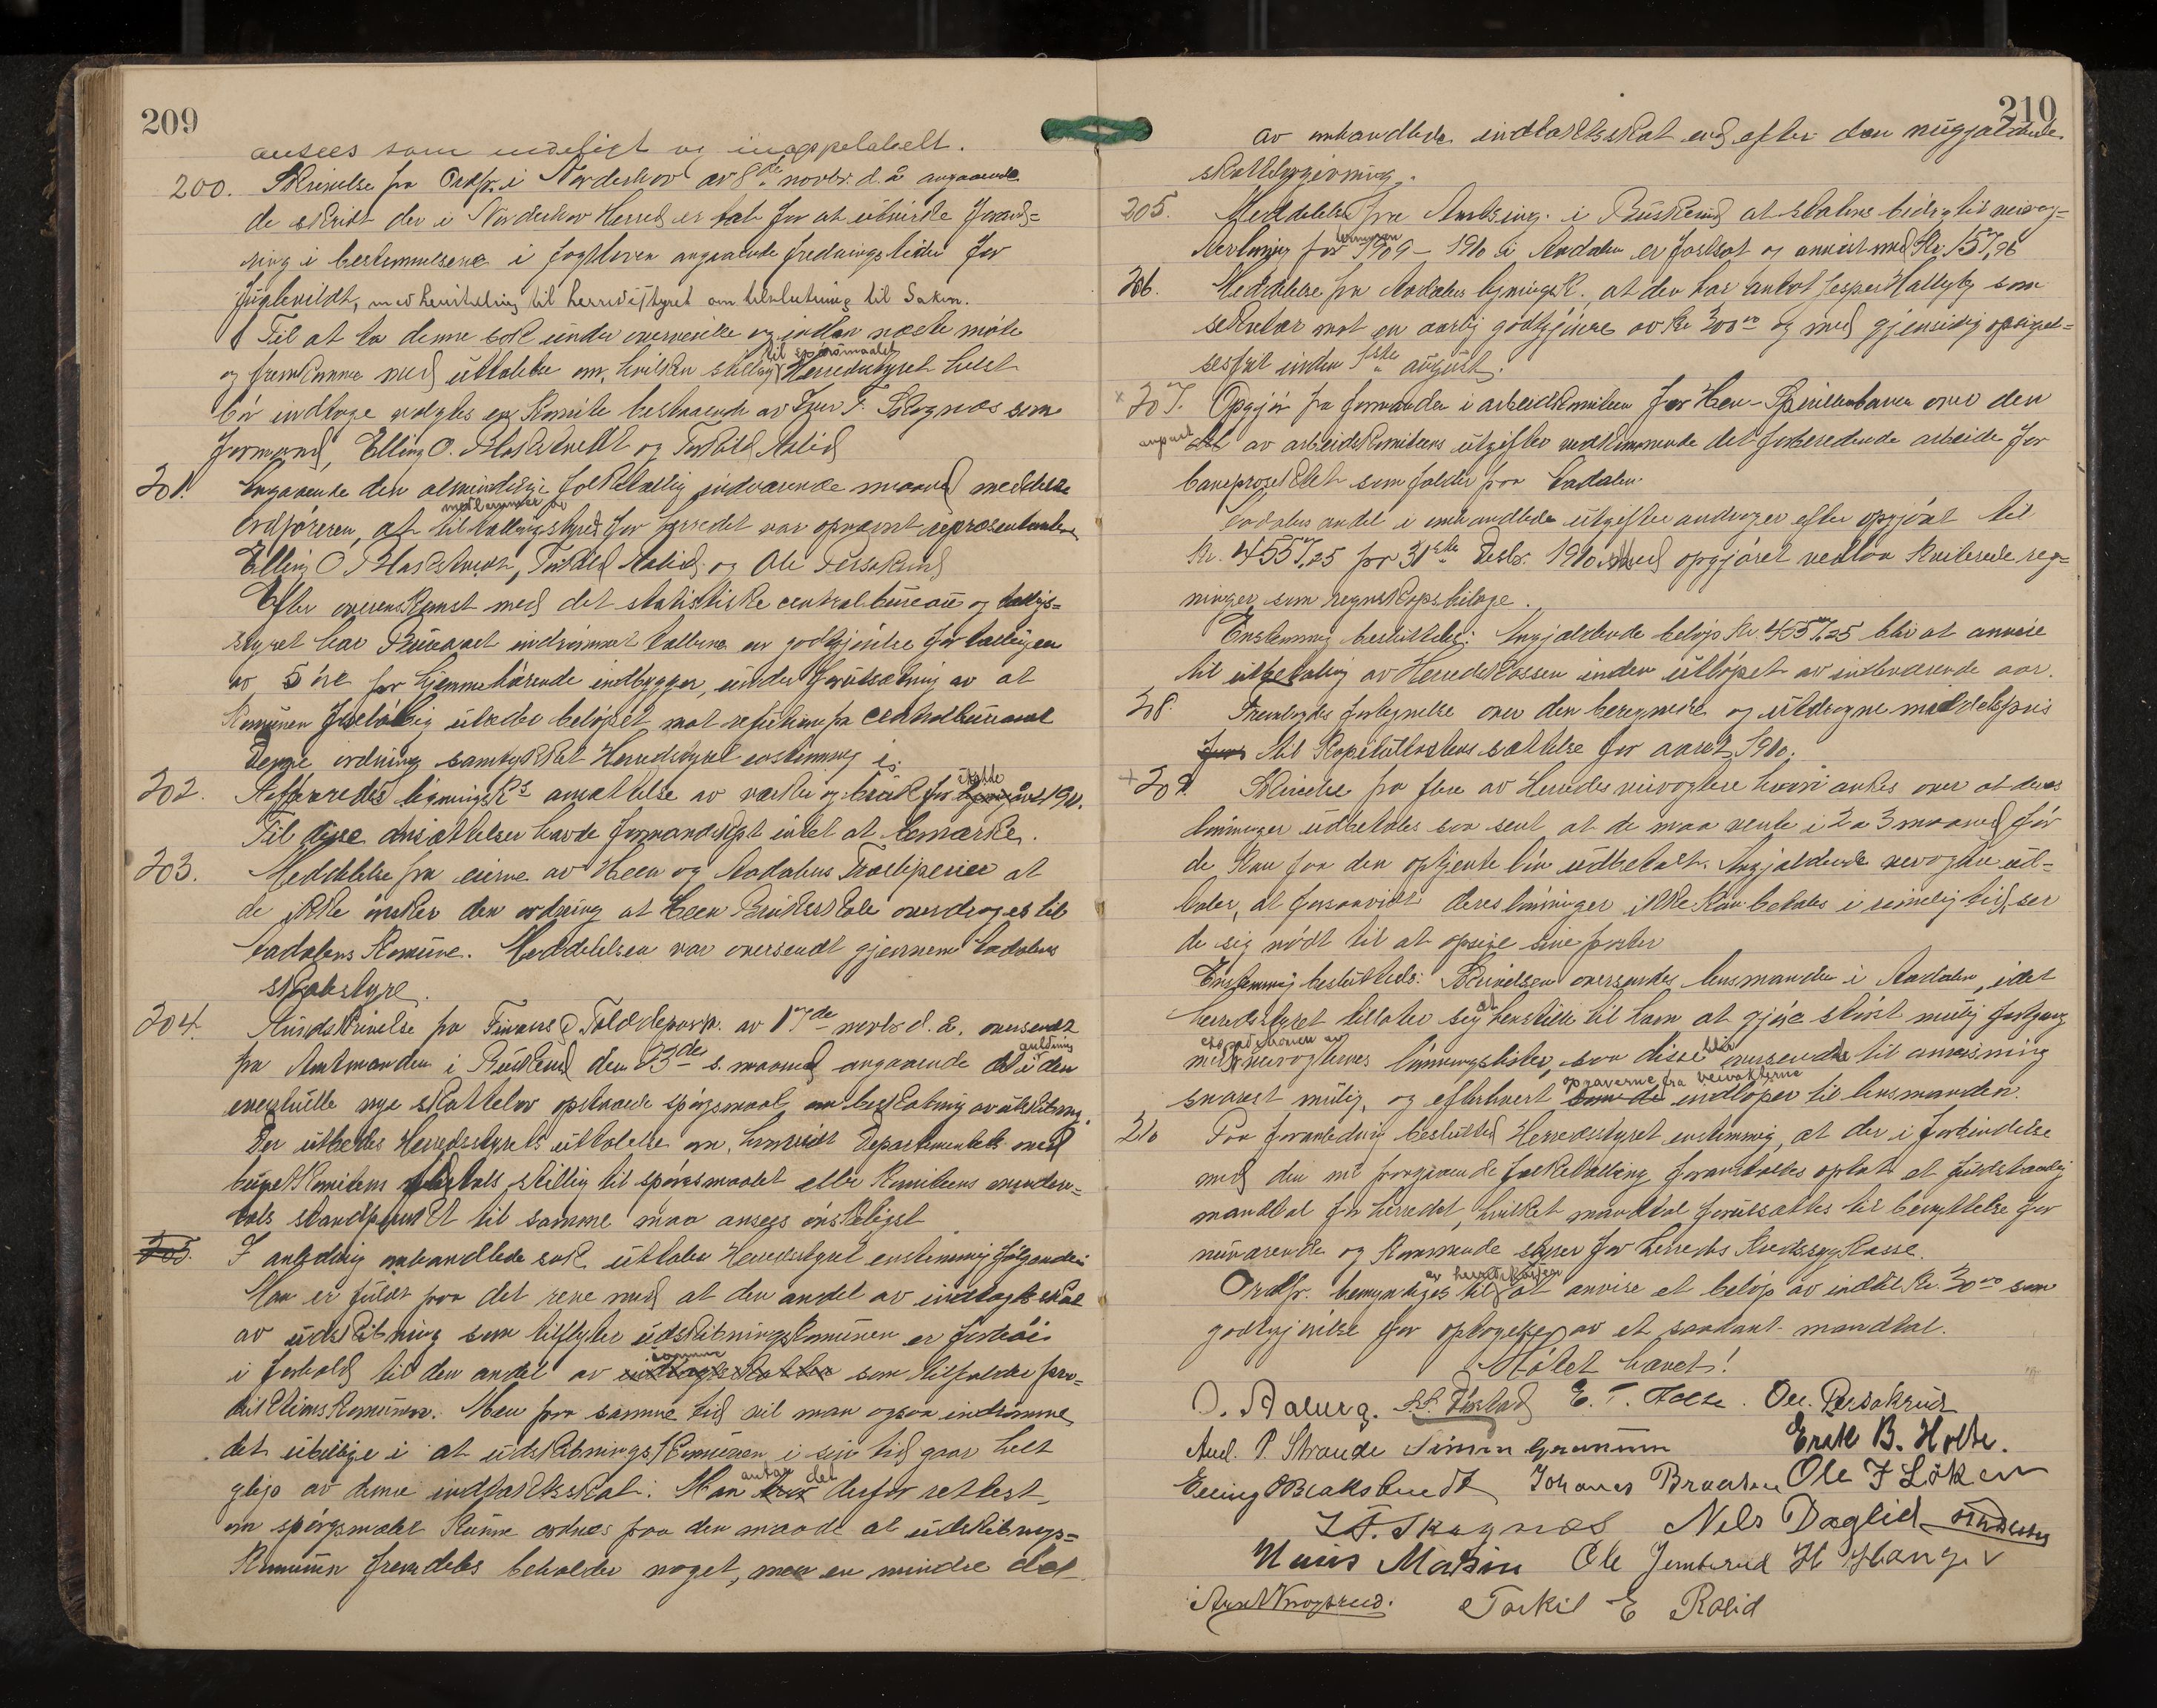 209
ansees som endeligt og inappelabelt.
200. Skrivelse fra Ordfr. i Norderhov av 8de novbr. d. å angaaende
de skridt der i Norderhov Herred er tat for at utvirke forand=
ring i bestemmelsene i jagtloven angaaende fredningstiden for
fuglevildt, med henstilling til herredsstyret om tilslutning til saken.
Til at ta denne sak under overveielse og inden næste møte
og fremkomme med uttalelse om, hvilken stilling til spørsmaalet Herredsstyret helst
bør indtage valgtes en Komite bestaaende av Iver F. Skagnæs som
formand, Elling O. Blakstvedt og Torkild Rolid
201. Angaaende den almindelige folketælling indeværende maaned meddelte
Ordføreren, at til medlemmer av tællingsstyret for herredet var opnævnt repræsentantene
Elling O Blakstvedt, Torkild Rolid og Ole Persokrud
Efter overenskomst med det statistiske centralbureau og tællings=
styret har Bureauet indrømmet tællerne en godtgjørelse for tællingen
av 5 øre for hjemmehørende indbygger, under forutsætning av at
Komunen foreløbig utreder beløpet mot refution fra Centralbureauet
Denne ordning samtykket Herredsstyret enstemmig i.
202. Aaførredes ligningsk.s ansættelse av værker og bruk for skatteaaret 1911.
Til disse ansættelser havde formandskapet intet at bemærke.
203. Meddelelse fra eierne av Heen og Aadalens Træsliperier at
de ikke ønsker den ordning at Heen Bruksskole overdrages til
Aadalens Komune. Meddelelsen var oversendt gjennem Aadalens
skolestyre.
204. Rundskrivelse fra Finans & Tolddepart. av 17de novbr d. å. oversendt
fra Amtmanden i Buskerud den 23de s. maaned angaaende det i anledning den
eventuelle nye skattelov opstaaede spørgsmaal om beskatning av utskibning.
Der utbedes Herredsstyrets uttalelse om, hvorvidt Departementets med
budgetkomiteens flertals stilling til spørsmaalet eller Komiteens mindre=
tals standpunkt til samme maa ansees ønskeligst
205. I anledning omhandlede sak uttaler Herredsstyret enstemmig følgende:
Man er fuldt paa det rene med at den andel av indtægtsskat
av udskibning som tilflyter udskibningskomunen er forhøi
i forhold til den andel av samme indtægtsskatter som tilfalder pro=
duktionskomunen. Men paa samme tid vil man ogsaa indrømme
det ubillige i at udskibnings Komunen i sin tid gaar helt
glip av denne indtægtsskat. Man antar det tror derfor rettest,
om spørgsmaalet kunne ordnes paa den maade at udskibnings=
Komunen fremdeles beholder noget, men en mindre del
210
av omhandlede indtægtsskat end efter den nugjældende
skattelovgivning.
205. Meddelelse fra Amtsing. i Buskerud at statens bidrag til veivog=
terlønning for terminen 1909-1910 i Aadalen er fastsat og anvist med Kr. 157,96
206. Meddelelse fra Aadalens ligningsk. at den har antat Jesper Hallingby som
sekretær mot en aarlig godtgjørelse av Kr 300 00 og med gjensidig opsigel=
sesfrist inden 1ste august.
207. Opgjør fra formanden i arbeidskomiteen for Hen-Sperillenbanen over den
anpart del av arbeidskomiteens utgifter vedkommende det forberedende arbeide for
baneprosjektet som falder paa Aadalen.
Aadalens andel i omhandlede utgifter andrager efter opgjøret til
Kr. 4557,25 pr 31ste Decbr. 1910. Med opgjøret vedlaa kvitterede reg=
ninger som regnskapsbilage.
Enstemmig besluttedes: Angjældende beløp Kr. 4557,25 blir at anvise
til utbetaling av Herredskassen inden utløpet av indeværende aar.
208. Fremlagdes fortegnelse over den beregnede og utdragne middelspris
til Kapitultakstens sættelse for aaret 1910.
209. Skrivelse fra flere av Herredets veivogtere hvori ankes over at deres
lønninger udbetales saa sent at de maa vente i 2 a 3 maaned før
de kan faa den optjente løn udbetalt. Angjældende veivogtere ud=
taler, at forsaavidt deres lønninger ikke kan betales i rimelig tid, ser
de sig nødt til at opsige sine poster
Enstemmig besluttedes: Skrivelsen oversendes lensmanden i Aadalen, idet
herredsstyret tillater sig at henstille til ham at gjøre størst mulig fortgang
med expeditionen av veivogternes lønningslister, saa disse blir oversendt til anvisning
snarest mulig, og efterhvert opgaverne fra veivokterne som de indløper til lensmanden.
210 Paa foranledning besluttet Herredsstyret enstemmig, at der i forbindelse
med den nu foregaaende folketælling foranstaltes optat et fuldstændig
mandtal for herredet, hvilket mandtal forutsættes til benyttelse for
nuværende og kommende styrer for herredets Kredssygekasse.
Ordfr. bemyndiges til at av herredskassen anvise et beløp av indtil Kr. 30 00 som
godtgjørelse for optagelsen av et saadant mandtal.
Møtet hævet!
O. Aaberg. E. T. Holte. Ole Persokrud
And. P. Strande Simen Granum Erik B. Holte.
Elling O Blakstvedt Johannes Braaten Ole F Løken
I. F. Skagnæs Nels Daglid
Nuus Moson Ole Jemterud H Hange
Axel Knagsrud. Torkil E Rolid